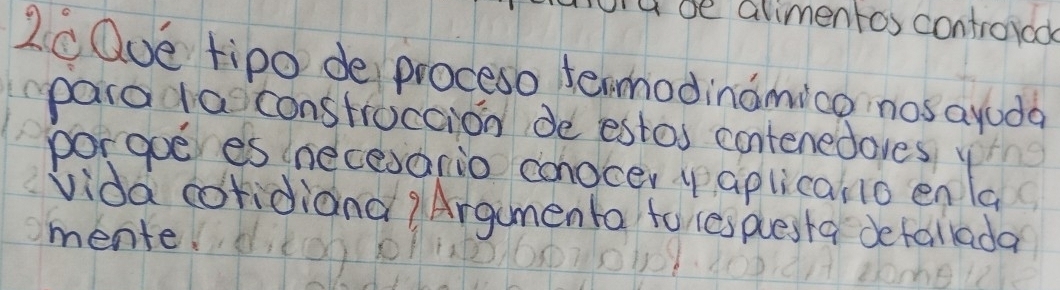 de alimentos
2¿Qué tipo de proceso termodinámico nos ayuda
para la construcción de estos contenedores y
porqué es necesario conocer y aplicarlo en la
vida cotidiana? Argumenta tu respuesta detallada
mente.